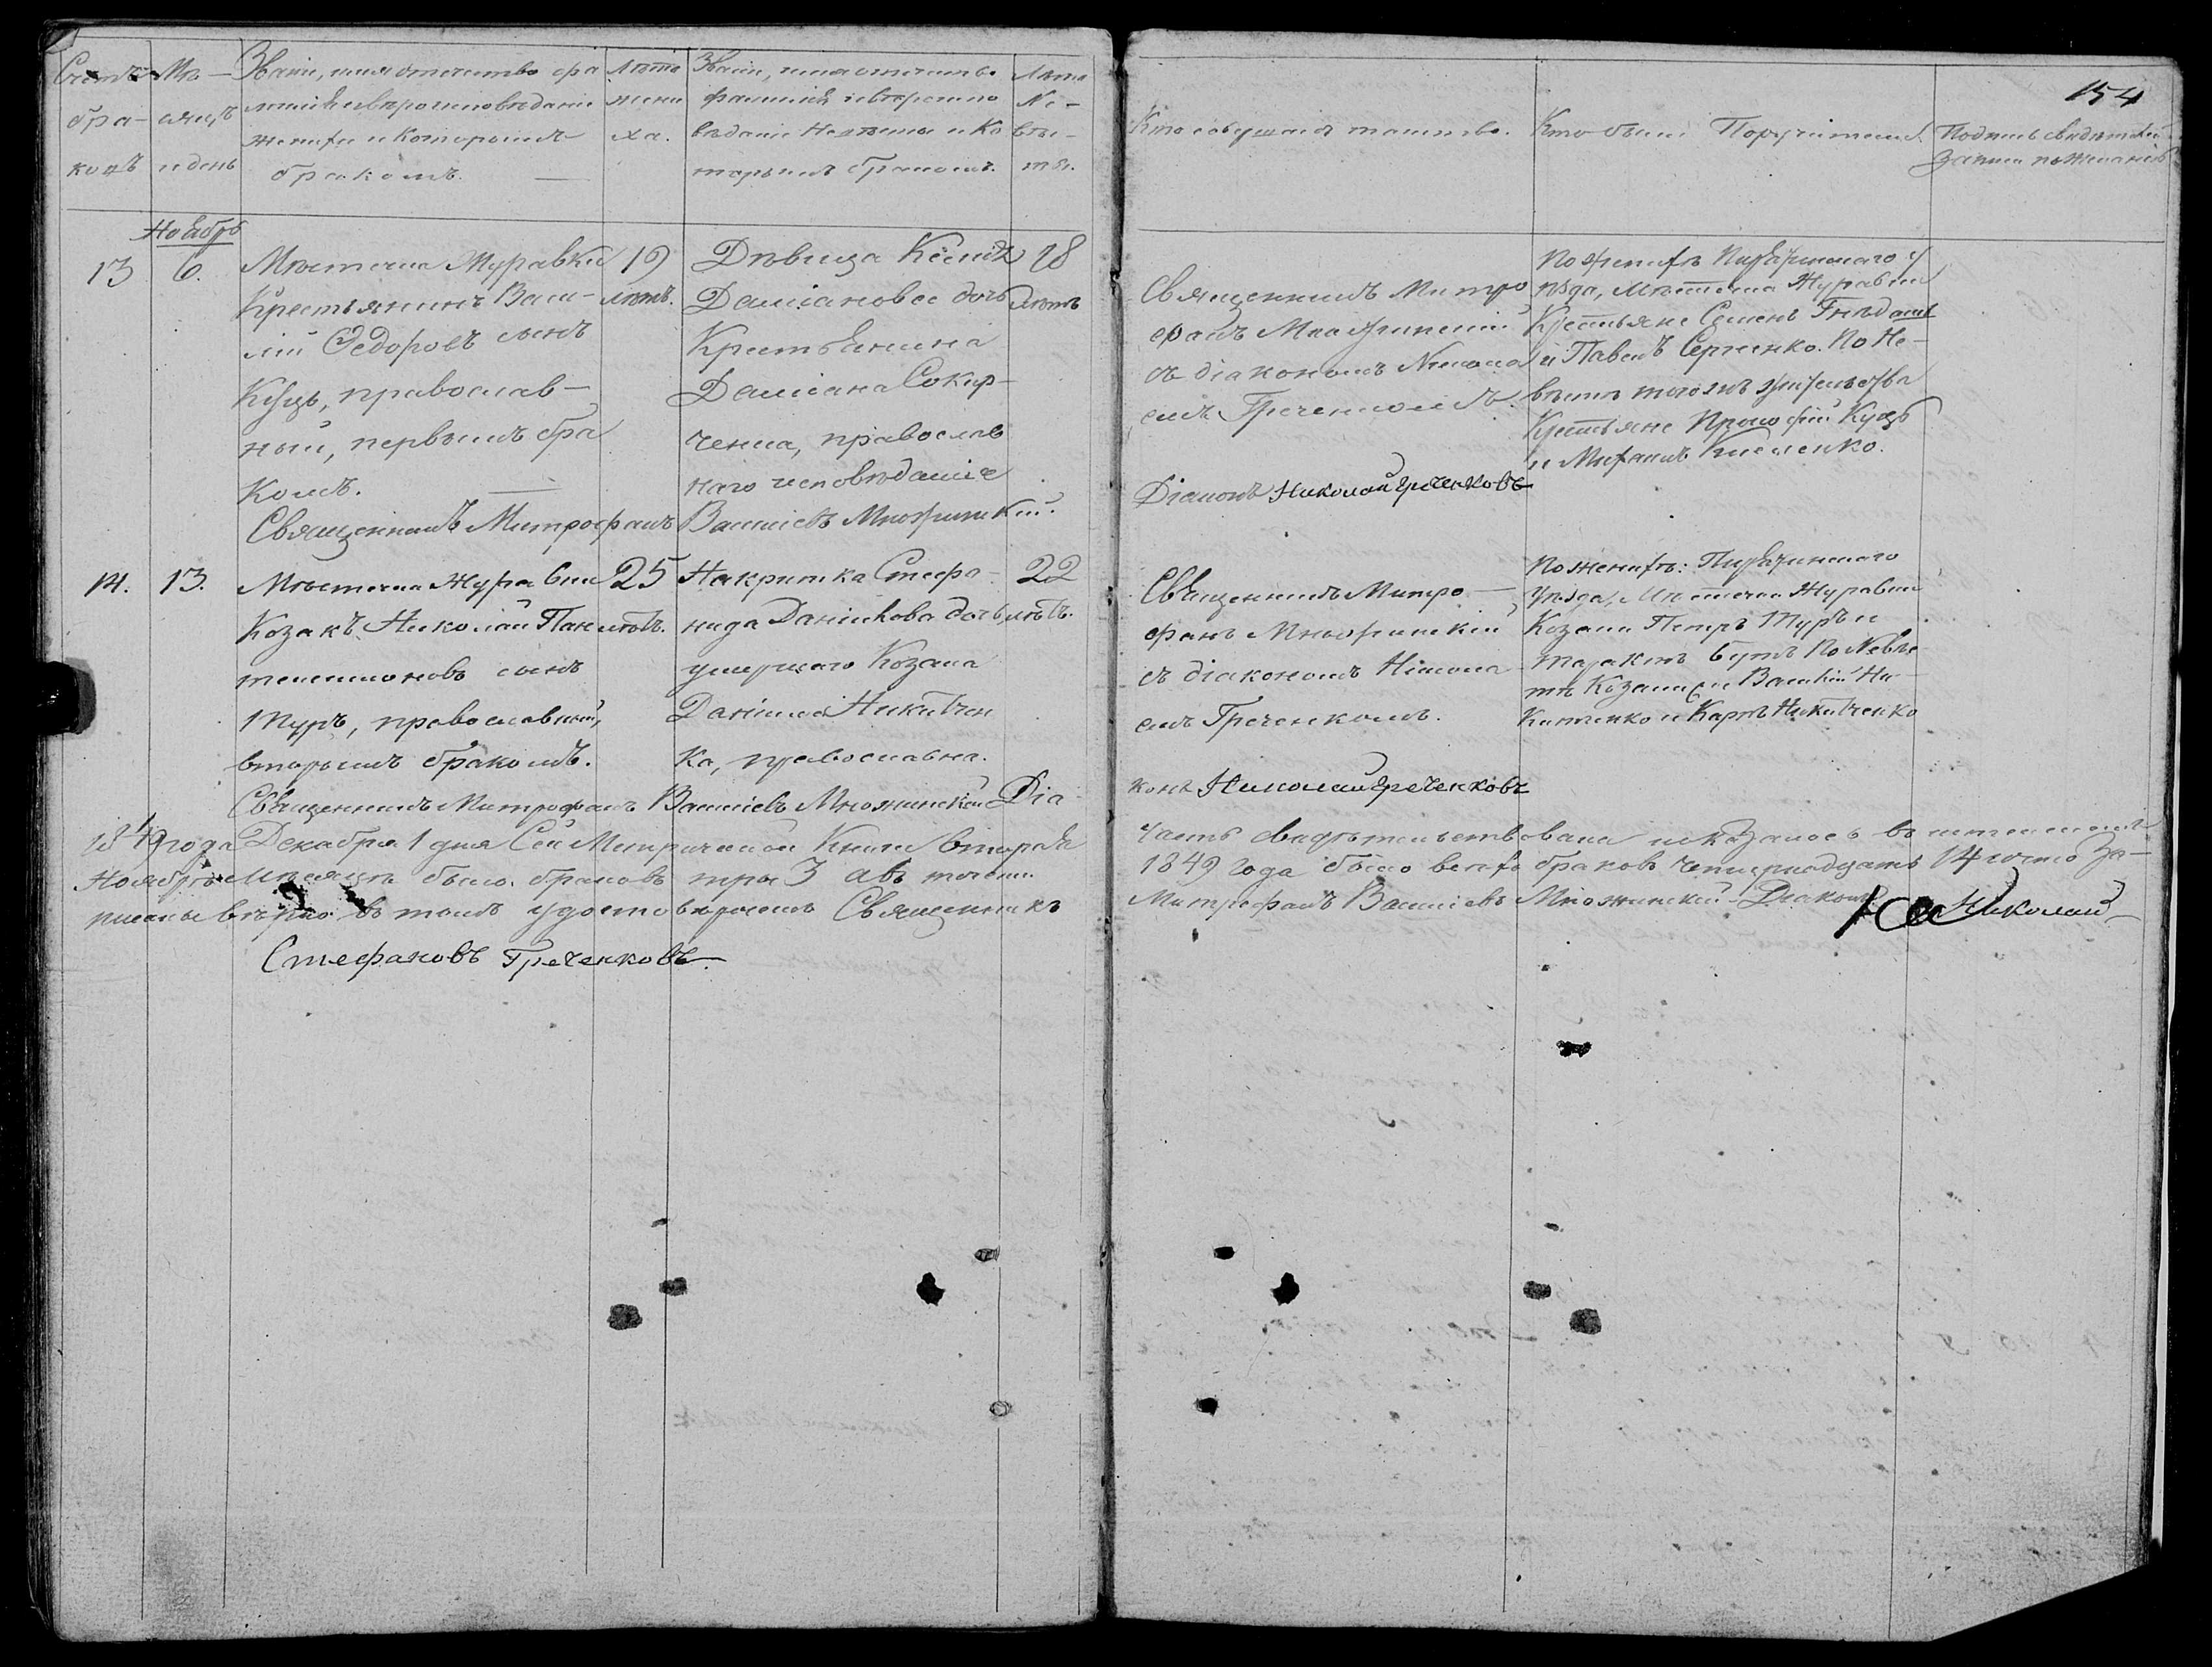 154
Счетъ бра- ковъ
Мѣ- сяцъ и день
Званіе, имя отечество фа
милія и вѣроисповѣданіе
жениха и которымъ
бракомъ.
Лѣта жени ха.
Званіе, имя отечество
фамилія и вѣроиспо
вѣданіе Невѣсты и Ко
торымъ бракомъ.
Лѣта Не- вѣс- ты.
Кто совершалъ таинство.
Кто были Поручители.
Подпись свидѣтелей
записи по желанію
Ноябрь
13
6.
Мѣстечка Журавки
Крестьянинъ Васи-
лій Ѳедоровъ сынъ
Куцъ, православ-
ный, первымъ бра
комъ.
19
лѣтъ.
Дѣвица Ксенія
Даміанова дочь
Крестьянина
Даміана Сокир-
ченка, православ
наго исповѣданія
18
лѣтъ
Священникъ Митро
фанъ Множинскій
съ діакономъ Никола
емъ Греченкомъ.
По женихѣ Пирятинскаго у
ѣзда, Мѣстечка Журавки
Крестьяне Семенъ
и Павелъ Сергіенко. По Не-
вѣстѣ того же жительства
Крестьяне Прокофій Куцъ
и
Священникъ Митрофанъ Василіевъ Множинскій.
Діаконъ Николай Греченковъ
14.
13.
Мѣстечка Журавки
Козакъ Николай Пан
телеимоновъ сынъ
Туръ, православный,
вторымъ бракомъ.
25
лѣтъ.
Стефа-
нида Даніилова дочь,
умершаго Козака
Даніила Никитчен
ка, православна.
22
лѣтъ.
Священникъ Митро-
фанъ Множинскій
съ діакономъ Никола
емъ Греченкомъ.
По женихѣ: Пирятинскаго
Уѣзда, Мѣстечка Журавки
Козаки Петръ Туръ и
По Невѣс
тѣ Козаки Василій Ни-
китченко и Карпъ Никитченко
Священникъ Митрофанъ Василіевъ Множинскій Діа
конъ Николай Греченковъ
1849 года Декабря 1 дня Сей Метрической Книги вторая
часть свидѣтельствована и оказалось въ
Ноябрѣ мѣсяцѣ было браковъ три 3 а въ теченіи
1849 года было всѣхъ браковъ четырнадцать 14 и что за-
писаны вѣрно въ томъ удостовѣряемъ Священникъ
Митрофанъ Василіевъ Множинскій Діаконъ Николай
Стефановъ Греченковъ.